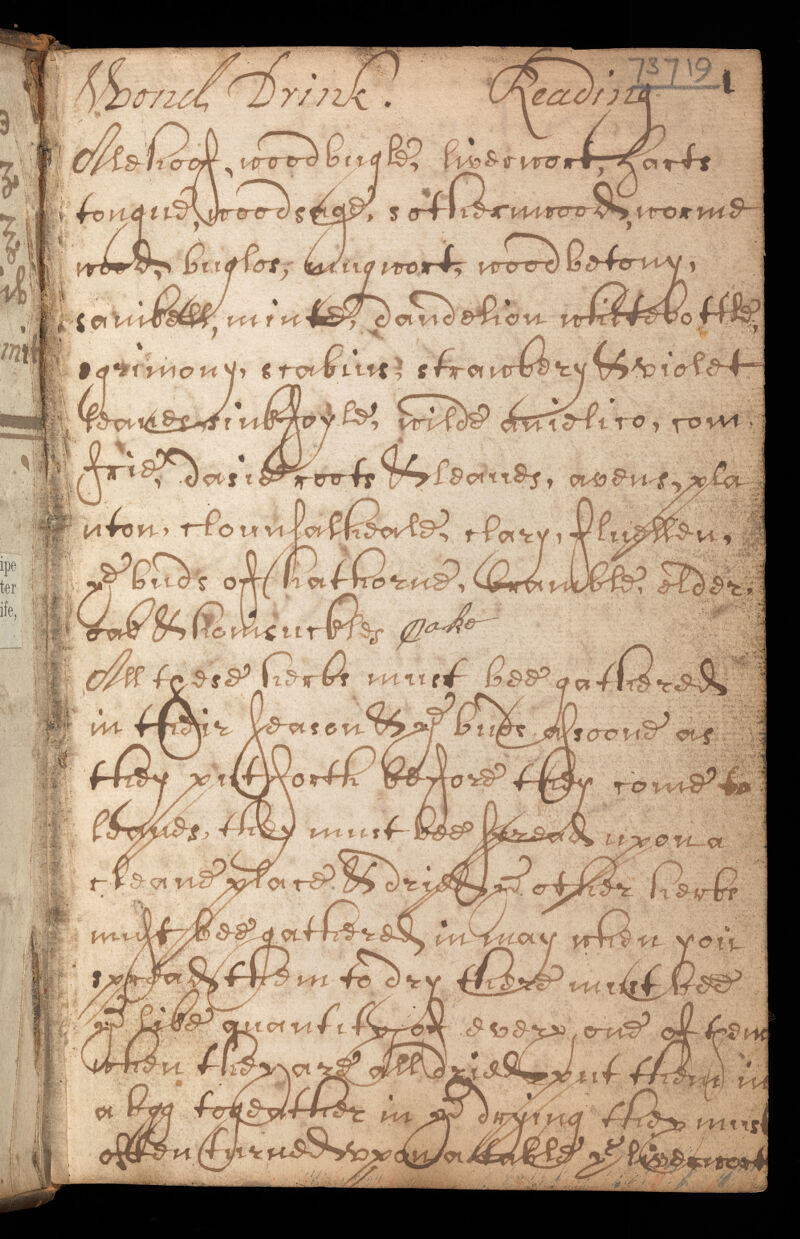 73719
1
Wond Drink. Reading
Alehoof, woodbugle, liverwort, harts
tongue, woodsage, sothernwood, worme
wood, buglos, mugwort, woodbetony,
sanikell, minte, dandelion whittebottle,
agrimony, scabius, strawbery & violet
leaves sinkfoyle, wilde anielico, com
frie, dasie roots & leaves, avens, pla
nton, clounsalheale, clary, fluellen,
ye buds of hathorne, bramble, elder,
oak & honisuckles oake
All these herbs must bee gathered
in their season & ye buds assoone as
they put forth before they come to
leaves, they must bee spread upon a
cleane place & dried ye other herbs
must bee gathered in may when you
spread them to dry there must bee
ye like quantity of every one of them
when they are all dried put them in
a bgg togeather in ye drying they must
often turned upon a table ye liverwort
ipe
ter
ife,